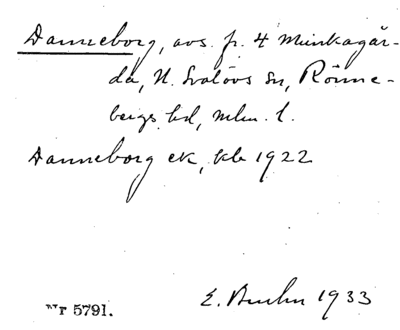 Danneborg, avs. fr. 4 Munkagår-
da, N. Svalövs sn, Rönne-
bergs hd, mlm. l.
Danneborg ek, kb 1922
E. Bruhn 1933
r 5791.